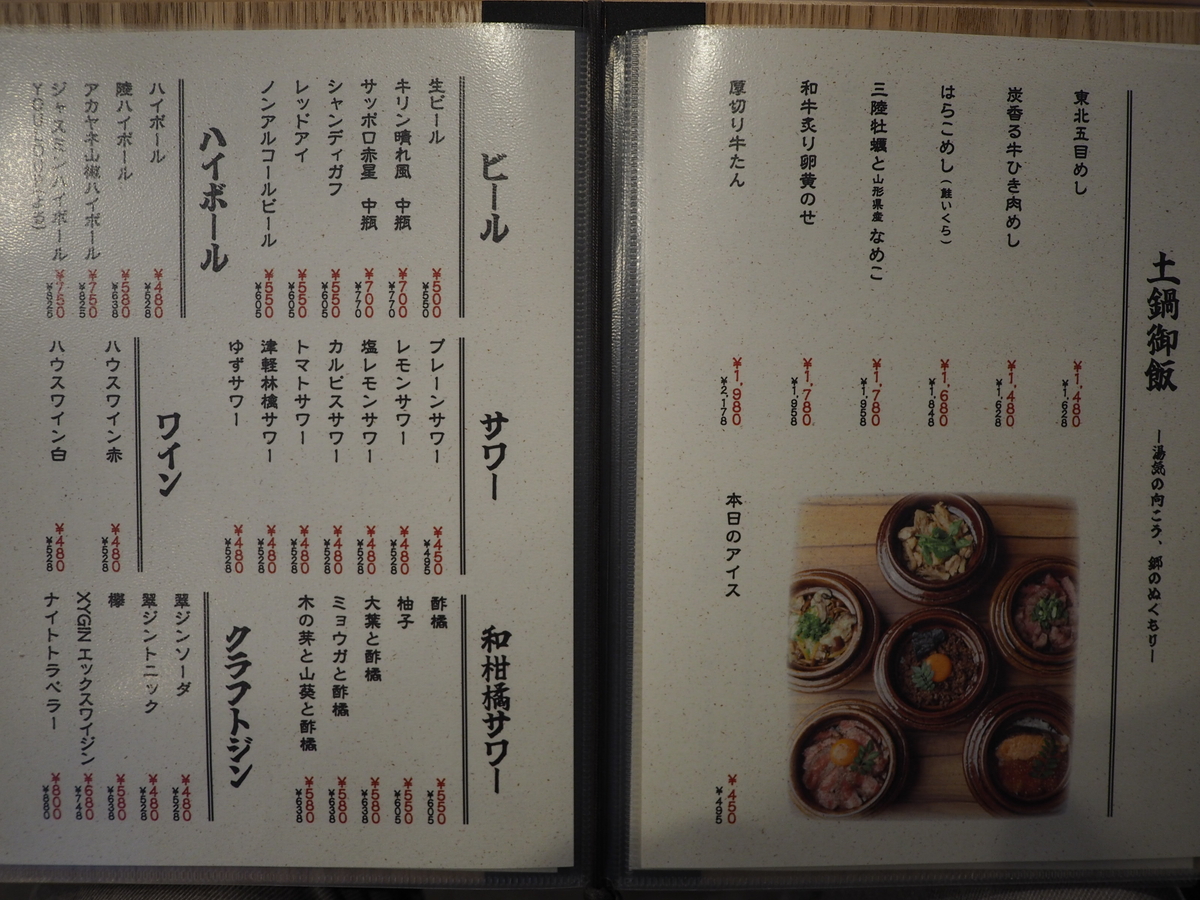 土鍋御飯 ー湯気の向こう、郷のぬくもりー
東北五目めし ¥1,480 ¥1,628
炭香る牛ひき肉めし ¥1,480 ¥1,628
はらこめし(鮭いくら) ¥1,680 ¥1,848
三陸牡蠣と山形県産なめこ ¥1,780 ¥1,958
和牛炙り卵黄のせ ¥1,780 ¥1,958
厚切り牛たん ¥1,980 ¥2,178
本日のアイス ¥450 ¥495
ビール
生ビール ¥500 ¥550
キリン晴れ風 中瓶 ¥700 ¥770
サッポロ赤星 中瓶 ¥700 ¥770
シャンディガフ ¥550 ¥605
レッドアイ ¥550 ¥605
ノンアルコールビール ¥550 ¥605
ハイボール
ハイボール ¥480 ¥528
陸ハイボール ¥580 ¥638
アカヤネ山椒ハイボール ¥750 ¥825
ジャスミンハイボール ¥750 ¥825
サワー
プレーンサワー ¥450 ¥495
レモンサワー ¥480 ¥528
塩レモンサワー ¥480 ¥528
カルピスサワー ¥480 ¥528
トマトサワー ¥480 ¥528
津軽林檎サワー ¥480 ¥528
ゆずサワー ¥480 ¥528
ワイン
ハウスワイン赤 ¥480 ¥528
ハウスワイン白 ¥480 ¥528
和柑橘サワー
酢橘 ¥550 ¥605
柚子 ¥550 ¥605
大葉と酢橘 ¥580 ¥638
ミョウガと酢橘 ¥580 ¥638
木の芽と山葵と酢橘 ¥580 ¥638
クラフトジン
翠ジンソーダ ¥480 ¥528
翠ジントニック ¥480 ¥528
欅 ¥580 ¥638
XYGIN エックスワイジン ¥680 ¥748
ナイトトラベラー ¥800 ¥880